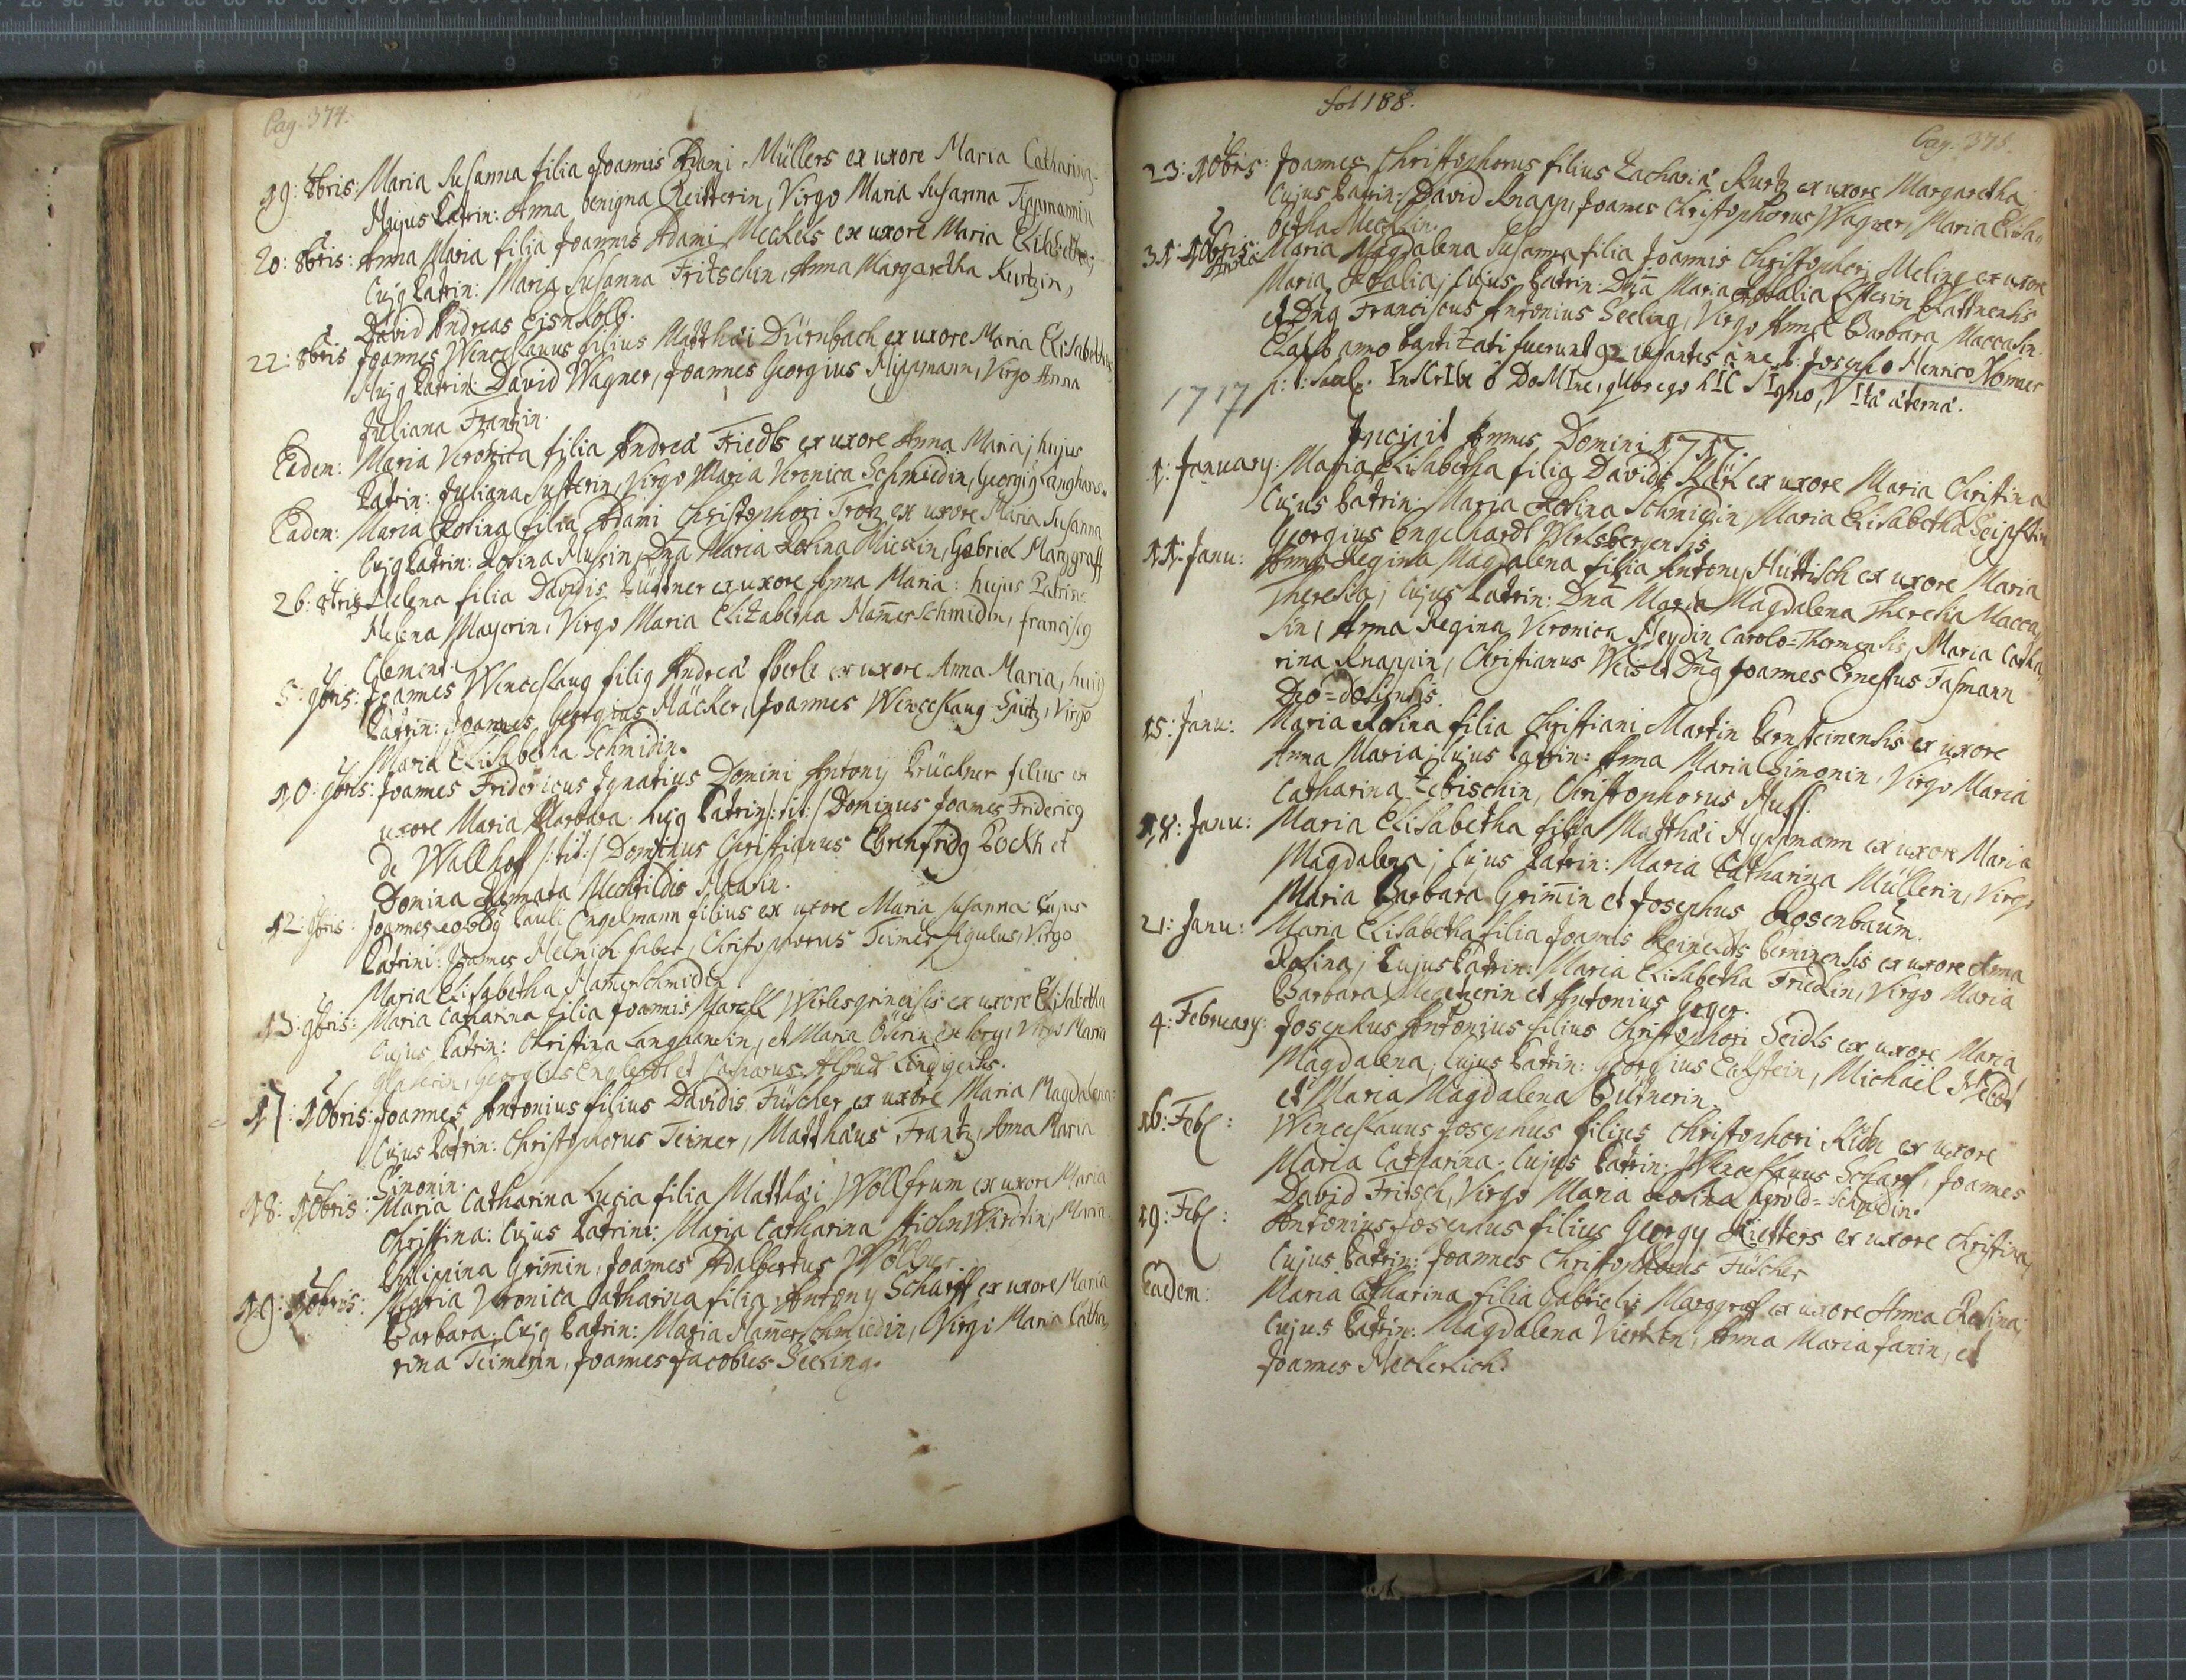 Pag. 374.
19: 8bris: Maria Susanna filia Joannis Adami Müllers ex uxore Maria Catharina
Hujus Patrin: Anna benigna Reitterin, Virgo Maria Susanna Tippmannin
20: 8bris: Anna Maria filia Joannis Adami Meckels ex uxore Maria Elisabetha
Cujg Patrin: Maria Susanna Fritschin, Anna Margaretha Kurtzin,
David Andreas Eisnkolb.
22: 8bris Joannes Wenceslaus filius Matthæi Dürnbach ex uxore Maria Elisabetha
Hujg Patrin: David Wagner, Joannes Georgius Hippmann, Virgo Anna
Juliana Frantzin.
Eadem: Maria Veronica filia Andreæ Friedls ex uxore Anna Maria; hujus
Patrin: Juliana Susterin, Virgo Maria Veronica Schmiedin, Georgig Langhans.
Eadem: Maria Rosina filia Adami Christophori Trotz ex uxore Maria Susanna
Cujg Patrin: Rosina Helena filia Davidis Püttner ex uxore Anna Maria: hujus Patrin:
Helena Mayerin, Virgo Maria Elizabetha Ham̄erschmidin, francisg
Clement.
5: 9bris: Joannes Wenceslaug filig Andreæ Eberle ex uxore Anna Maria, hujg
Patrin: Joannes Georgius Häcker, Joannes Wenceslaug Spitz, Virgo
Maria Elisabetha Schmidin.
10: 9bris: Joannes Fridericus Ignatius Domini Antony Brückner filius ex
uxore Maria Barbara. hujg Patrin /:tit:/ Dominus Joannes Fridericg
de Wallhoff /:tit:/ Dominus Christianus Ehrenfridg Bockh et
Domina Renata Mechtildis Haasin.
12: 9bris: Joannes Leopoldg Pauli Engelmann filius ex uxore Maria Susanna: Cujus
Patrini: Joannes Helmich faber, Christophorus Teimer figulus, Virgo
Maria Elisabetha Ham̄erschmidin
13: 9bris: Maria Catharina filia Joannis Marckl ex uxore Elisabetha
Cujus Patrin: Christina Langhansin, et Maria Virgo Maria
17: 10bris: Joannes Antonius filius Davidis Füscher ex uxore Maria Magdalena:
Cujus Patrin: Christophorus Teimer, Matthæus Frantz, Anna Maria
Simonin.
18: 10bris: Maria Catharina Lucia filia Matthæi Wollfrum ex uxore Maria
Christina: Cujus Patrini: Maria Catharina Hichnwirdtin, Maria
Philippina Grim̄in, Joannes Adalbertus Wöllner.
19: 10bris: Maria Veronica Catharina filia Antony Scharff ex uxore Maria
Barbara. Cujg Patrin: Maria Ham̄erschmiedin, Virgi: Maria Catha,
rina Teimerin, Joannes Jacobus Seeling.
fol 188.
Pag. 375.
23: 10bris: Joannes Christophorus filius Zachariæ Kurtz ex uxore Margaretha
Cujus Patrin: David Knapp, Joannes Christophorus Wagner, Maria Elisa,
betha Mecklin.
31: 10bris: Maria Magdalena Susanna filia Joannis Christophori Meling ex uxore
Maria Rosalia; Cujus Patrin: Dn̄a Maria Rosalia Elsterin Plattnensis
et Dng Franciscus Antonius Seeling, Virgo Anna Barbara Maccasin.
Elapso anno baptizati fuerunt 92 infantes à me P: Josepho Henrico Nonner
1717 InsCrIbe ô DoMIne, qUos ego hIC sIgno, VItæ æternæ.
Incipit Annus Domini 1717.
1: January: Maria Elisabetha filia Davidis ex uxore Maria Christina
Cujus Patrin: Maria Rosina Schmiedin, Maria Elisabetha Seipftin
Georgius Engelhardt
11: Janu: Anna Regina Magdalena filia Antony Hüttisch ex uxore Maria
Theresia; Cujus Patrin: Dn̄a Maria Magdalena Theresia Macca,
sin, Anna Regina Veronica Heydin Carolo-Thermensis, Maria Catha,
rina Knappin, Christianus Weis et Dng Joannes Ernestus Fasmann
15: Janu: Maria Rosina filia Christiani Martin Bernsteinensis ex uxore
Anna Maria; cujus Patrin: Anna Maria Simonin, Virgo Maria
Catharina Zettischin, Christophorus Huff.
18: Janu: Maria Elisabetha filia Matthæi Hyppmann ex uxore Maria
Magdalena; Cujus Patrin: Maria Catharina Müllerin, Virgo
Maria Barbara Grim̄in et Josephus Rosenbaum.
21: Janu: Maria Elisabetha filia Joannis Berningensis ex uxore Anna
Rosina; Cujus Patrin: Maria Elisabetha Friedlin, Virgo Maria
Barbara Metznerin et Antonius Geyer.
4: February: Josephus Antonius filius Christophori Seidls ex uxore Maria
Magdalena, Cujus Patrin: Georgius Eckstein, Michael
et Maria Magdalena Bütnerin.
16: Feb: Wenceslaus Josephus filius Christophori ex uxore
Maria Catharina. Cujus Patrin: Wenceslaus Scharf, Joannes
David Fritsch, Virgo Maria Rosina
19: Feb: Antonius Josephus filius Georgy Rietters ex uxore Christina,
Cujus Patrin: Joannes Christophorus Füscher
Eadem: Maria Catharina filia Gabrielis Marggraf ex uxore Anna Rosina;
Cujus Patrin: Magdalena Anna Maria Janin, et
Joannes Heckerlich.